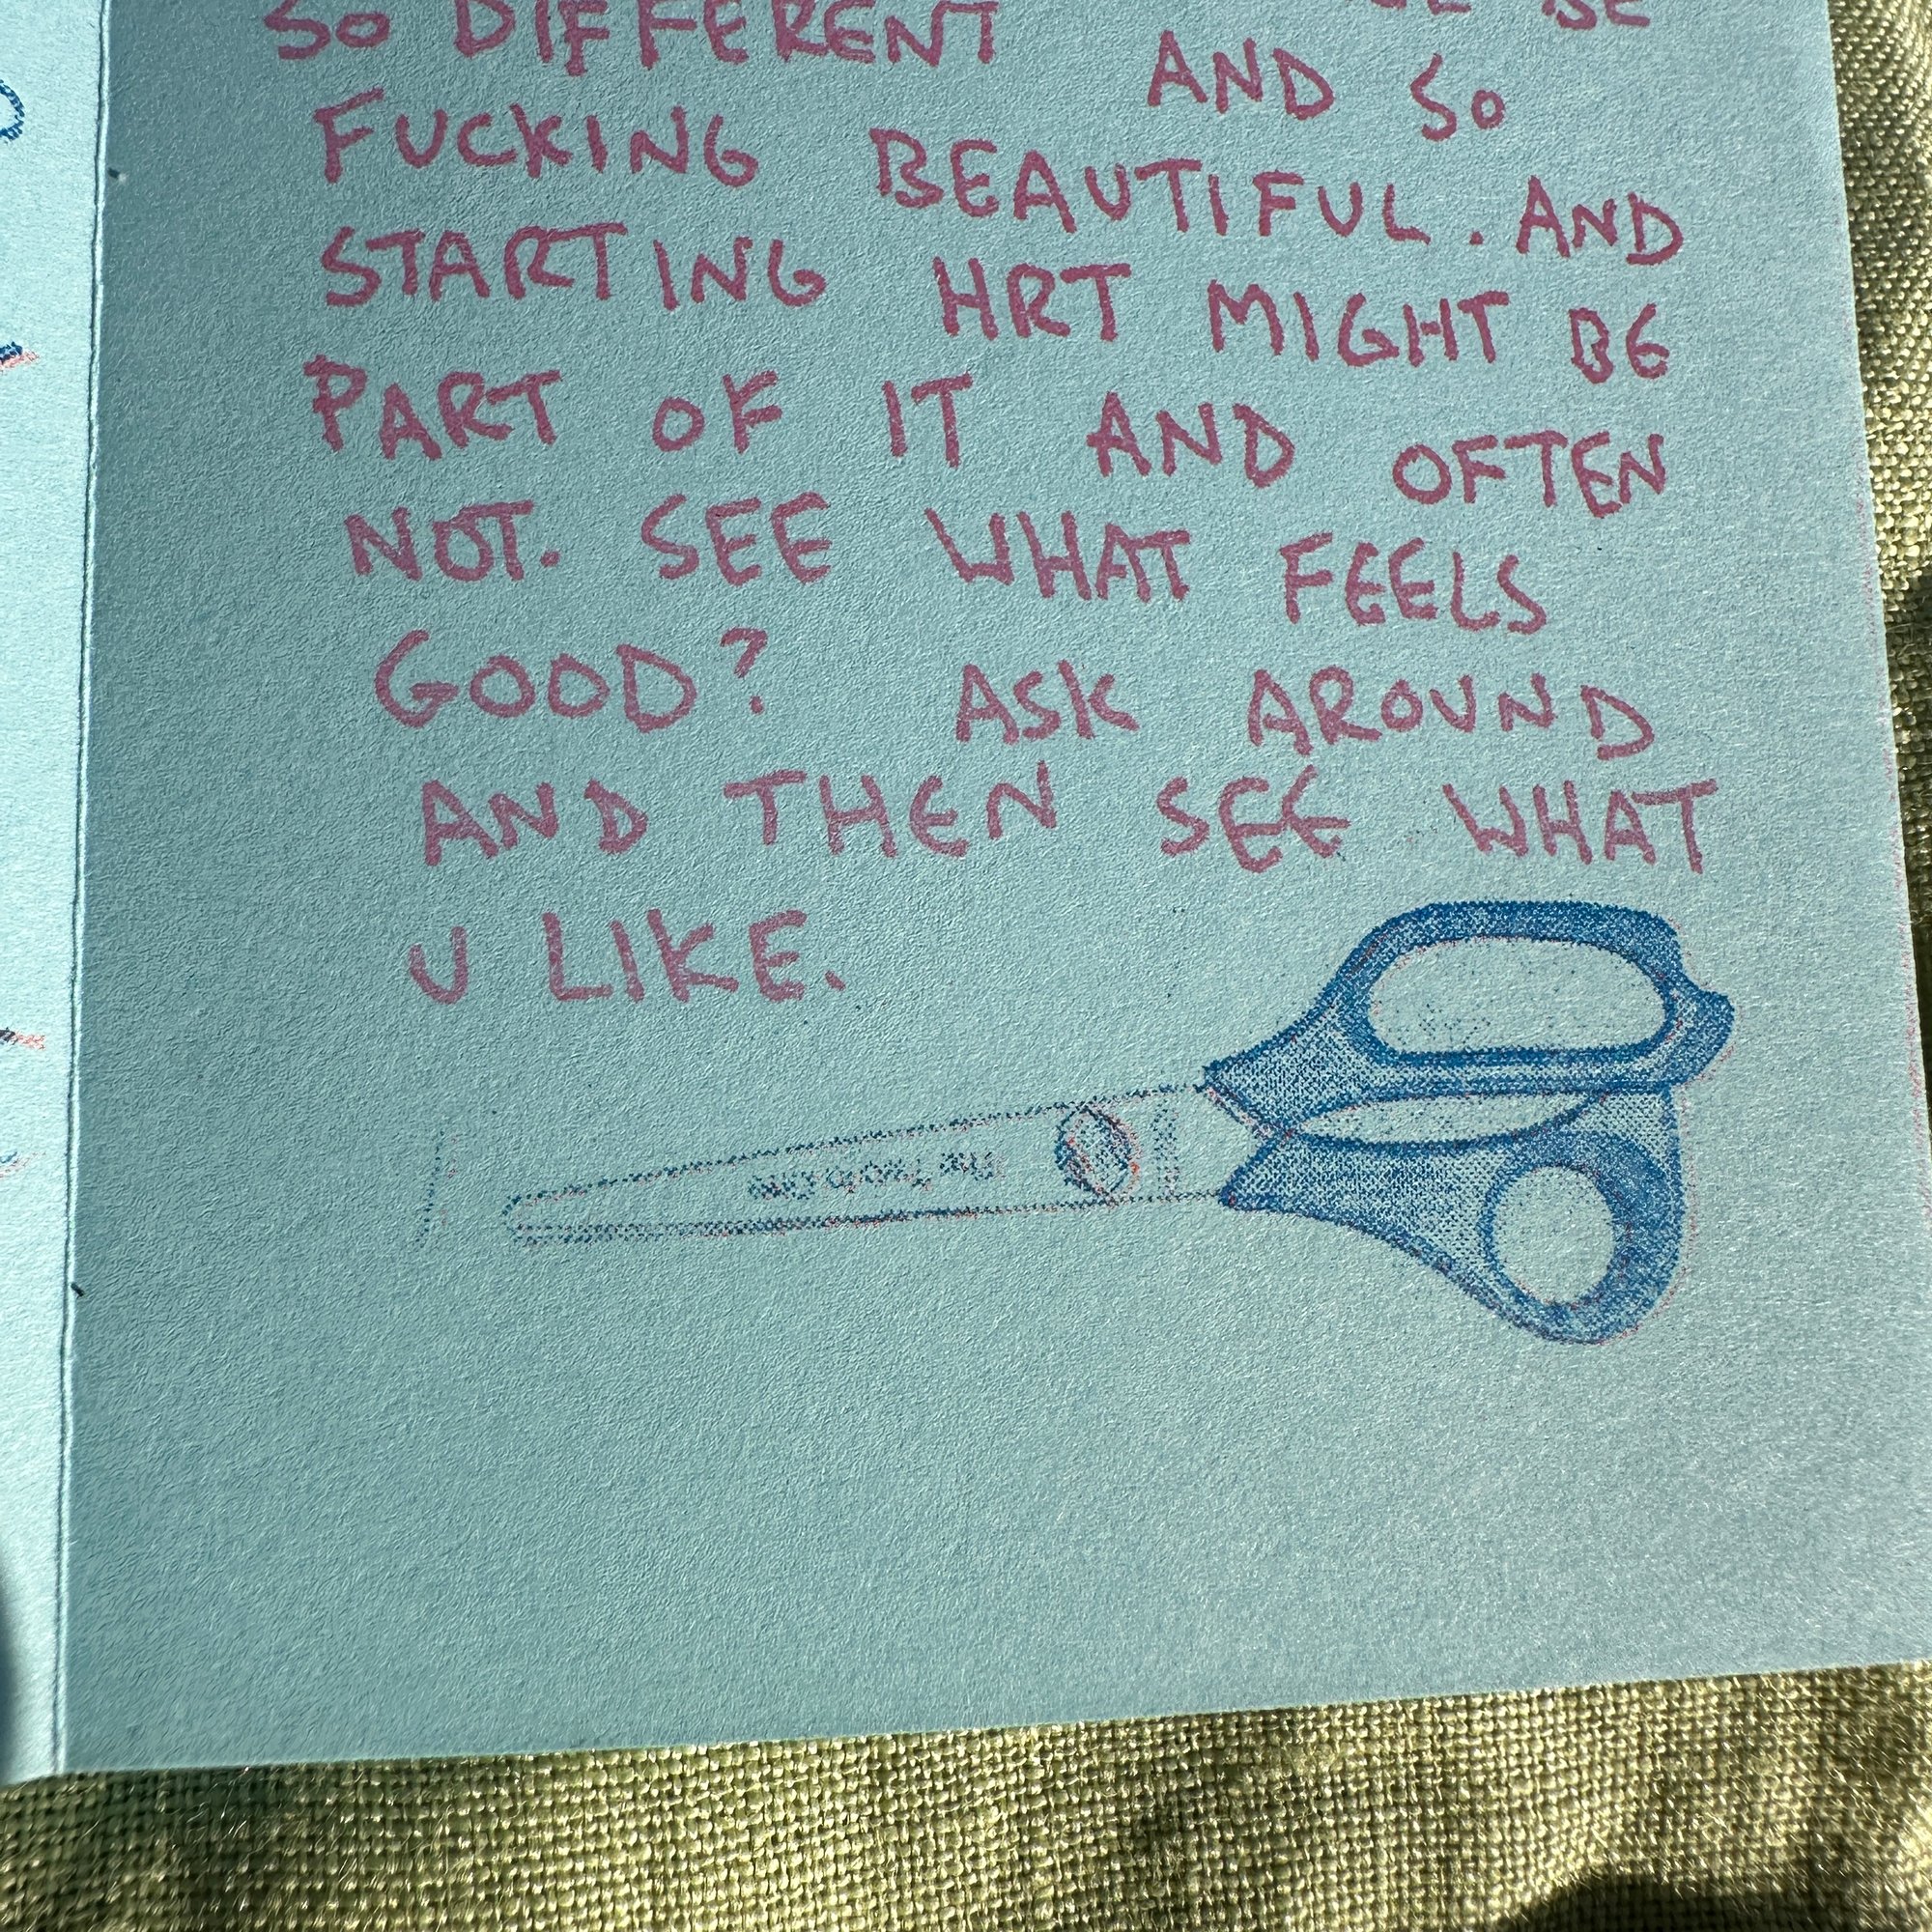 SO DIFFERENT BE
AND SO
FUCKING BEAUTIFUL. AND
STARTING HRT MIGHT BE
PART OF IT AND OFTEN
NOT. SEE WHAT FEELS
GOOD? ASK AROUND
AND THEN SEE WHAT
U LIKE.